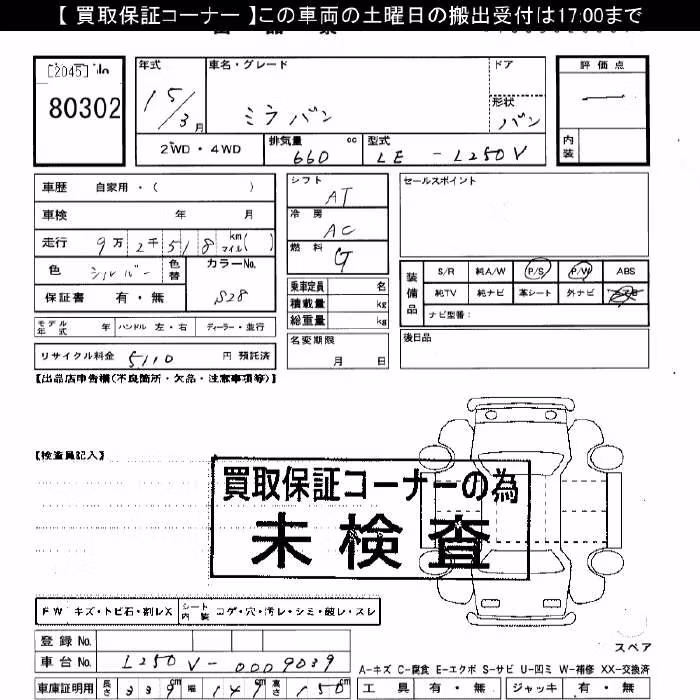 【 買取保証コーナー 】この車両の土曜日の搬出受付は17:00まで
[2045] No
80302
年式
15/3月
車名・グレード
ミラバン
ドア
形状
バン
評価点
—
内装
2WD・4WD
排気量 cc
660
型式
LE - L250V
車歴 自家用・( )
車検 年 月
走行 9万2千518 km マイル( )
色 シルバー 色替
カラーNo.
S28
保証書 有・無
モデル年式 年 ハンドル 左・右 ディーラー・並行
リサイクル料金 5110 円 預託済
シフト
AT
冷房
AC
燃料
G
乗車定員 名
積載量 kg
総重量 kg
名変期限
月 日
セールスポイント
装備品
S/R 純A/W P/S P/W ABS
純TV 純ナビ 革シート 外ナビ
ナビ型番:
後日品
【出品店申告欄(不良箇所・欠品・注意事項等)】
【検査員記入】
買取保証コーナーの為
未検査
FW キズ・トビ石・割レX
シート内装 コゲ・穴・汚レ・シミ・破レ・スレ
スペア
登録 No.
車台 No. L250V-0009039
A-キズ C-腐食 E-エクボ S-サビ U-凹ミ W-補修 XX-交換済
車庫証明用 長さ 339cm 幅 149cm 高さ 150cm
工具 有・無 ジャッキ 有・無